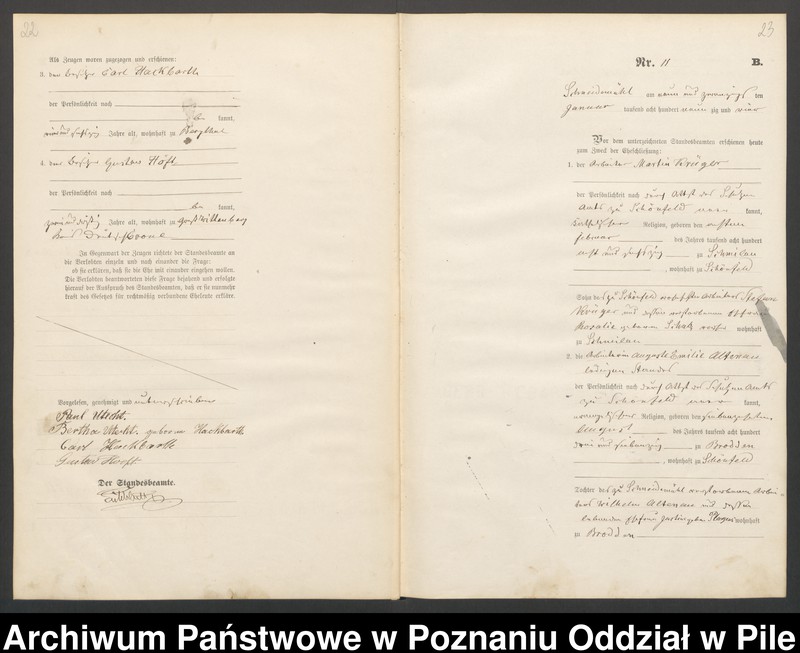 22
Als Zeugen waren zugezogen und erschienen:
3. den Besitzer Carl Hackbarth
der Persönlichkeit nach
be kannt,
vierundfünfzig Jahre alt, wohnhaft zu Bergthal
4. den Besitzer Gustav Höft
der Persönlichkeit nach
be kannt,
zweiunddreißig Jahre alt, wohnhaft zu Groß Wittenberg
Kreis Deutsch Crone
In Gegenwart der Zeugen richtete der Standesbeamte an
die Verlobten einzeln und nach einander die Frage:
ob sie erklären, daß sie die Ehe mit einander eingehen wollen.
Die Verlobten beantworteten diese Frage bejahend und erfolgte
hierauf der Ausspruch des Standesbeamten, daß er sie nunmehr
kraft des Gesetzes für rechtmäßig verbundene Eheleute erkläre.
Vorgelesen, genehmigt und unterschrieben
Paul
Bertha geboren Hackbarth
Carl Hackbarth
Gustav Höft
Der Standesbeamte.
23
Nr. 11
B.
Schneidemühl am neun und zwanzigs ten
Januar tausend acht hundert neun zig und vier
Vor dem unterzeichneten Standesbeamten erschienen heute
zum Zweck der Eheschließung:
1. der Arbeiter Martin Krüger
der Persönlichkeit nach durch Attest des Schulzen
Amts zu Schönfeld aner kannt,
katholischer Religion, geboren den ersten
Februar des Jahres tausend acht hundert
acht und sechszig zu Schmilau
, wohnhaft zu Schönfeld
Sohn des zu Schönfeld wohnhaften Arbeiters Stefan
Krüger und dessen verstorbenen Ehefrau
Rosalie geborenen Schulz wohnhaft
zu Schmilau
2. die Arbeiterin Auguste Emilie Altenau
ledigen Standes
der Persönlichkeit nach durch Attest des Schulzen Amts
zu Schönfeld aner kannt,
evangelischer Religion, geboren den siebenzehnten
August des Jahres tausend acht hundert
drei und siebenzig zu Brodden
, wohnhaft zu Schönfeld
Tochter des zu Schneidemühl verstorbenen Arbei-
ters Wilhelm Altenau und dessen
lebenden Ehefrau wohnhaft
zu Brodden
Archiwum Państwowe w Poznaniu Oddział w Pile